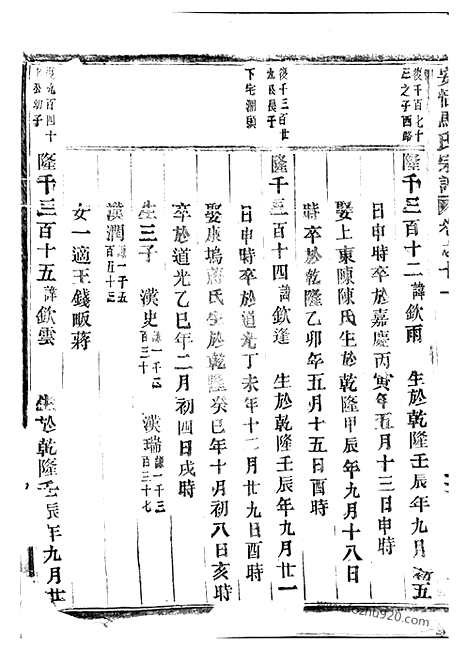 馬氏宗譜
隆千三百十二 諱欽雨 生於乾隆壬辰年九月初五
日申時卒於嘉慶丙寅年五月十三日申時
娶上東陳陳氏生於乾隆甲辰年九月十八日
時卒於乾隆乙卯年五月十五日酉時
下宅湖頭
隆千三百十四 諱欽逢 生於乾隆壬辰年九月廿一
日申時卒於道光丁未年十二月廿九日酉時
娶康塢蔣氏生於乾隆癸巳年十月初八日亥時
卒於道光乙巳年二月初四日戌時
生三子 漢史 諫一千三百三十 漢瑞 諫一千三百三十七
漢潤 諫一千五百五十三
女一適王錢畈蔣
隆千三百十五 諱欽雲 生於乾隆壬辰年九月廿
www.fozhu920.com